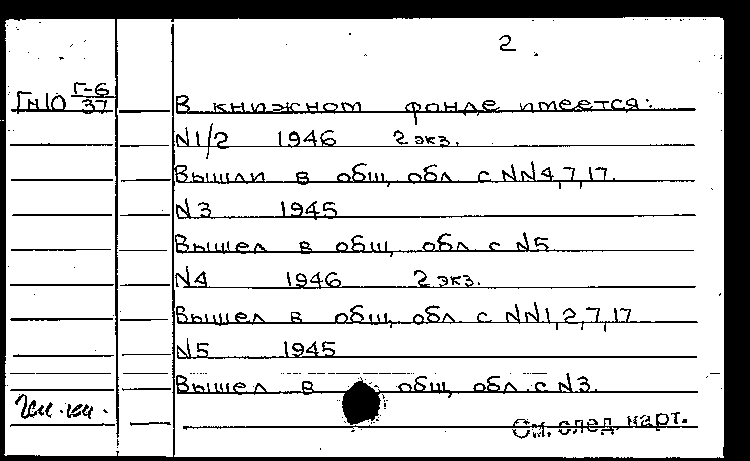 2
Гн10 Г-6/37
В книжном фонде имеется:
N1/2 1946 2 экз.
Вышли в общ, обл с NN4,7,17.
N3 1945
Вышел в общ, обл. с N5
N4 1946 2 экз.
Вышел в общ, обл. с NN1,2,7,17
N5 1945
Вышел в общ, обл. с N3.
См. след. карт.